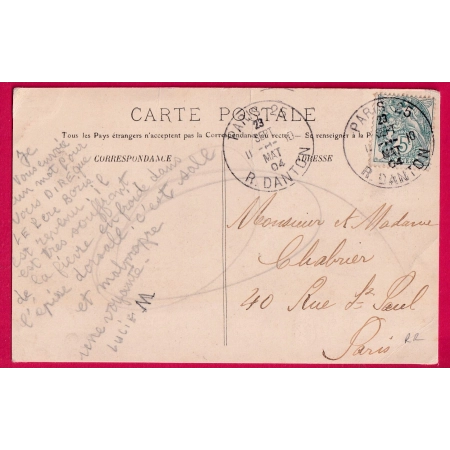 CARTE POSTALE
Tous les Pays étrangers n'acceptent pas la Correspondance au recto. Se renseigner à la P
CORRESPONDANCE
ADRESSE
PARIS 25
23
11
MAT
04
R. DANTON
PARIS 25
23
10
04
R. DANTON
Je
vous envoie
un mot pour
vous DIRE
LE
est revenu il
est très souffrant
de la fièvre en
l'épine dorsale c'est sale
et
une voyante
LUCIE M
Monsieur et Madame
Chabrier
40 Rue St Paul
Paris